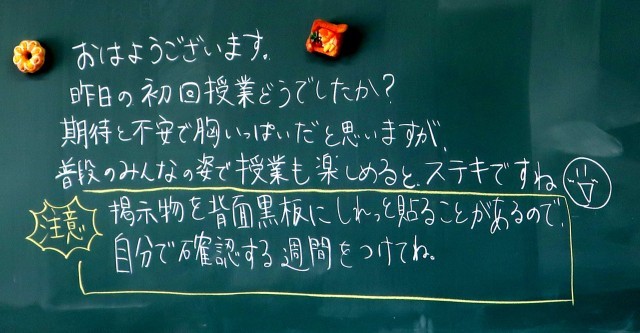 おはようございます。
昨日の初回授業どうでしたか?
期待と不安で胸いっぱいだと思いますが、
普段のみんなの姿で授業も楽しめると、ステキですね
注意
掲示物を背面黒板にしれっと貼ることがあるので、
自分で確認する週間をつけてね。